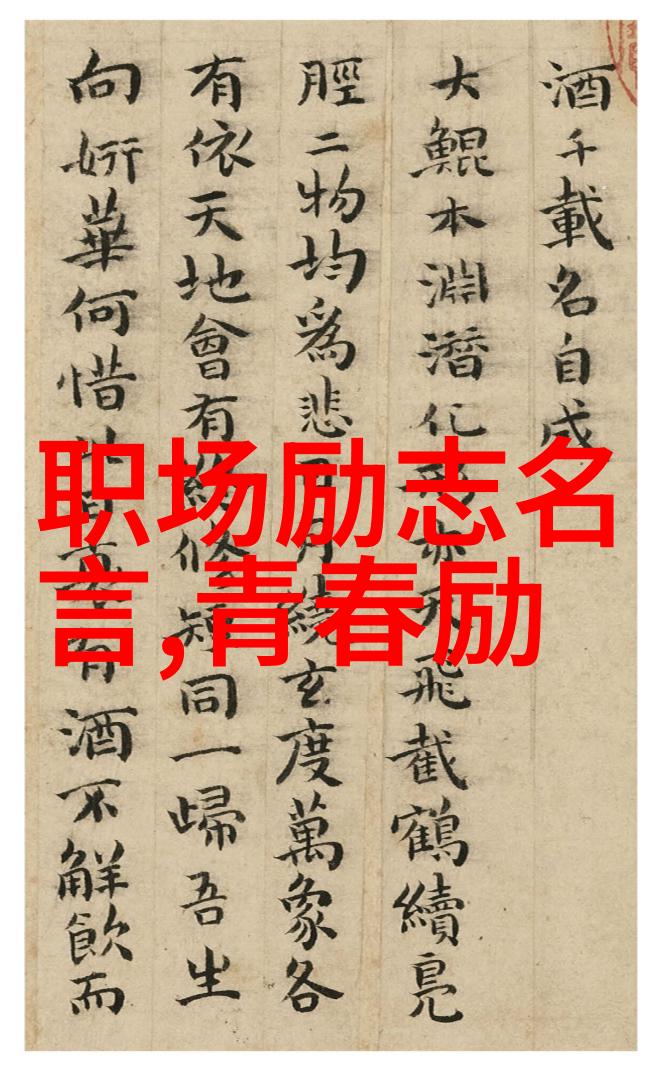 酒千載名自成
大鯤本淵潛化形亦天飛截鶴續鳧
脛二物均爲悲日月繞玄度萬象各
有依天地會有終修短同一歸吾生
向妍華何惜有酒不解飲而
职场励志名
言,青春励